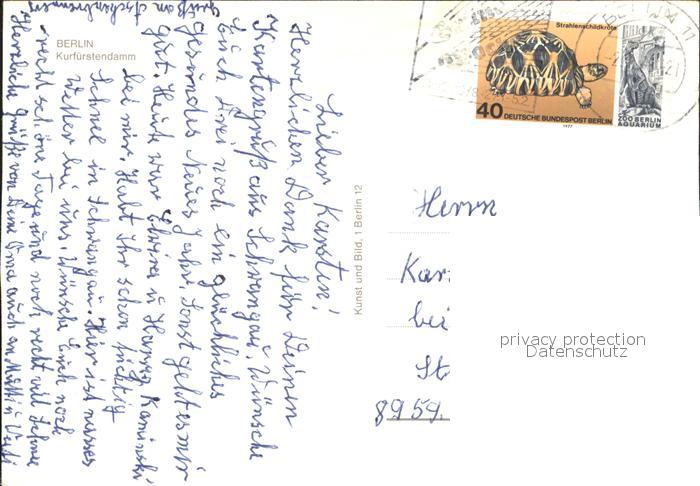 BERLIN
Kurfürstendamm
Lieber Karsten!
Herzlichen Dank für Deinen
Kartengruß aus Schwangau. Wünsche
Euch Drei noch ein glückliches
gesundes Neues Jahr. Sonst geht es mir
gut. Heute war Elvira u Hanna Kaminski
bei mir. Habt Ihr schon tüchtig
Schnee in Schwangau. Hier ist nasses
Wetter bei uns. Wünsche Euch noch
recht schöne Tage und noch recht viel Schnee
Herzliche Grüße von Deine Oma auch an Mutti u Vati
Gruß an
Kunst und Bild, 1 Berlin 12
Strahlenschildkröte
40 DEUTSCHE BUNDESPOST BERLIN
1977
ZOO BERLIN
AQUARIUM
BERLIN
Herrn
Kar
bei
St
8959
privacy protection
Datenschutz